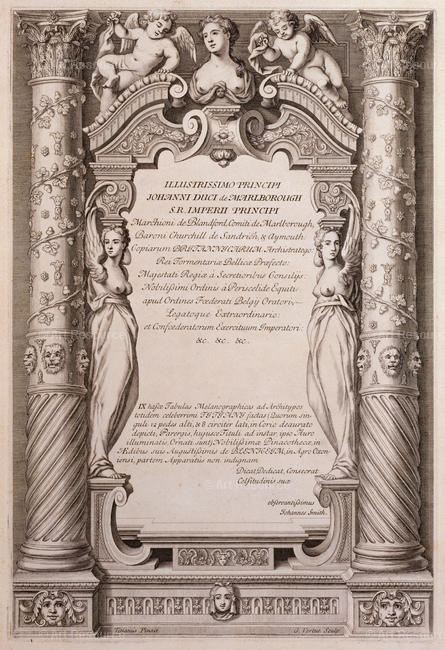 ILLUSTRISSIMO PRINCIPI
JOHANNI DUCI de MARLBOROUGH
S.R. IMPERII PRINCIPI
Marchioni de Blandford, Comiti de Marlborough,
Baroni Churchill de Sandrich, & Aymouth.
Copiarum BRITANNICARUM Archistratego:
Rei Tormentariæ Bellicæ Præfecto:
Majestati Regiæ à Secretioribus Consilijs:
Nobilissimi Ordinis à Periscelide Equiti:
apud Ordines Fœderati Belgij Oratori,
Legatoque Extraordinario:
et Confœderatorum Exercituum Imperatori:
&c. &c. &c.
IX hasce Tabulas Melanographicas ad Archetypos
totidem celeberrimi TITIANI factas (Quorum sin-
guli 12 pedes alti, & 8 circiter lati, in Corio deaurato
depicti, Parergis, hujusce Tituli ad instar, ipso Auro
illuminatis, Ornati sunt) Nobilissimæ Pinacothecæ, in
Ædibus suis Augustissimis de BLENHEIM, in Agro Oxon-
iensi, partem Apparatûs non indignam
Dicat, Dedicat, Consecrat
Celsitudinis suæ
observantissimus
Johannes Smith.
Titianus Pinxit
G. Vertue Sculp.